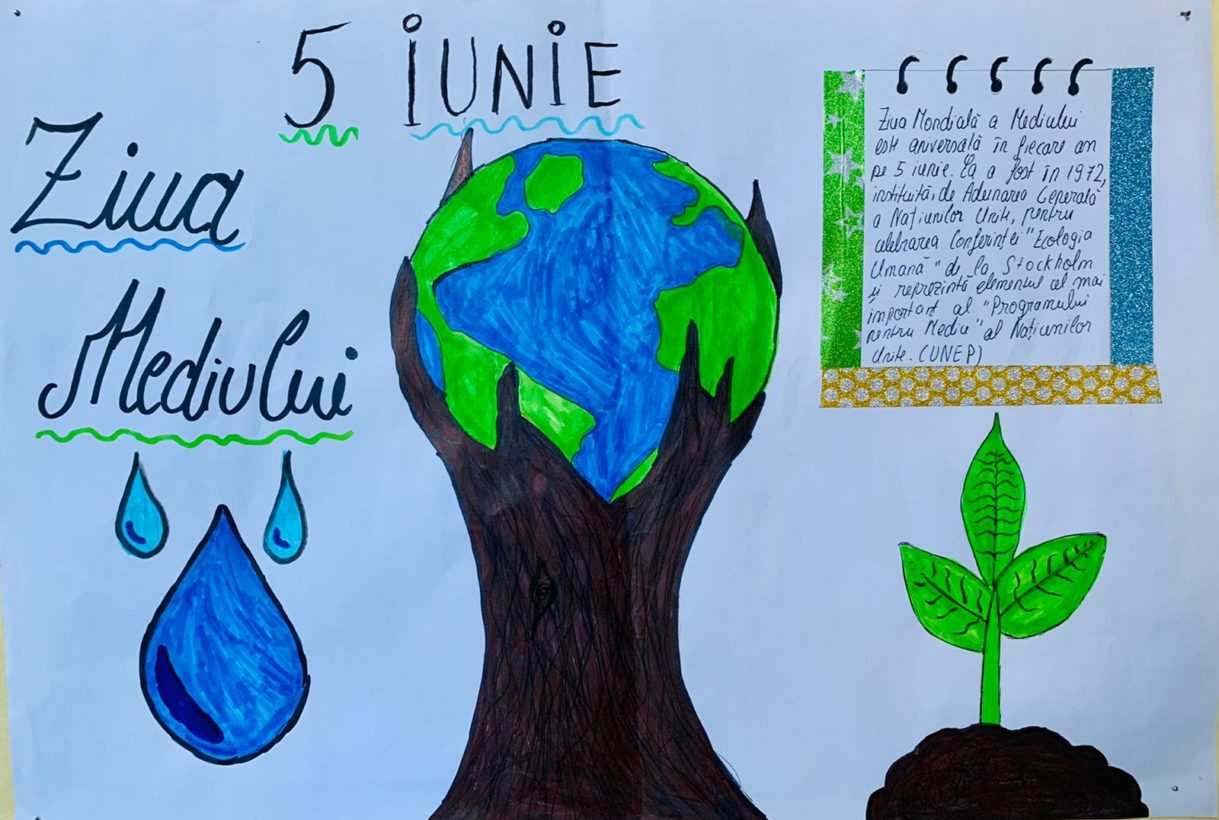 5 IUNIE
Ziua
Mediului
Ziua Mondială a Mediului
este aniversată în fiecare an
pe 5 iunie. Ea a fost în 1972,
instituită, de Adunarea Generală
a Națiunilor Unite, pentru
celebrarea Conferinței "Ecologia
Umană" de la Stockholm
și reprezintă elementul cel mai
important al "Programului
pentru Mediu" al Națiunilor
Unite. (UNEP)